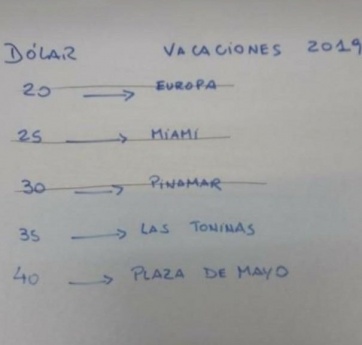 DÓLAR VACACIONES 2019
20 → EUROPA
25 → MIAMÍ
30 → PINAMAR
35 → LAS TONINAS
40 → PLAZA DE MAYO